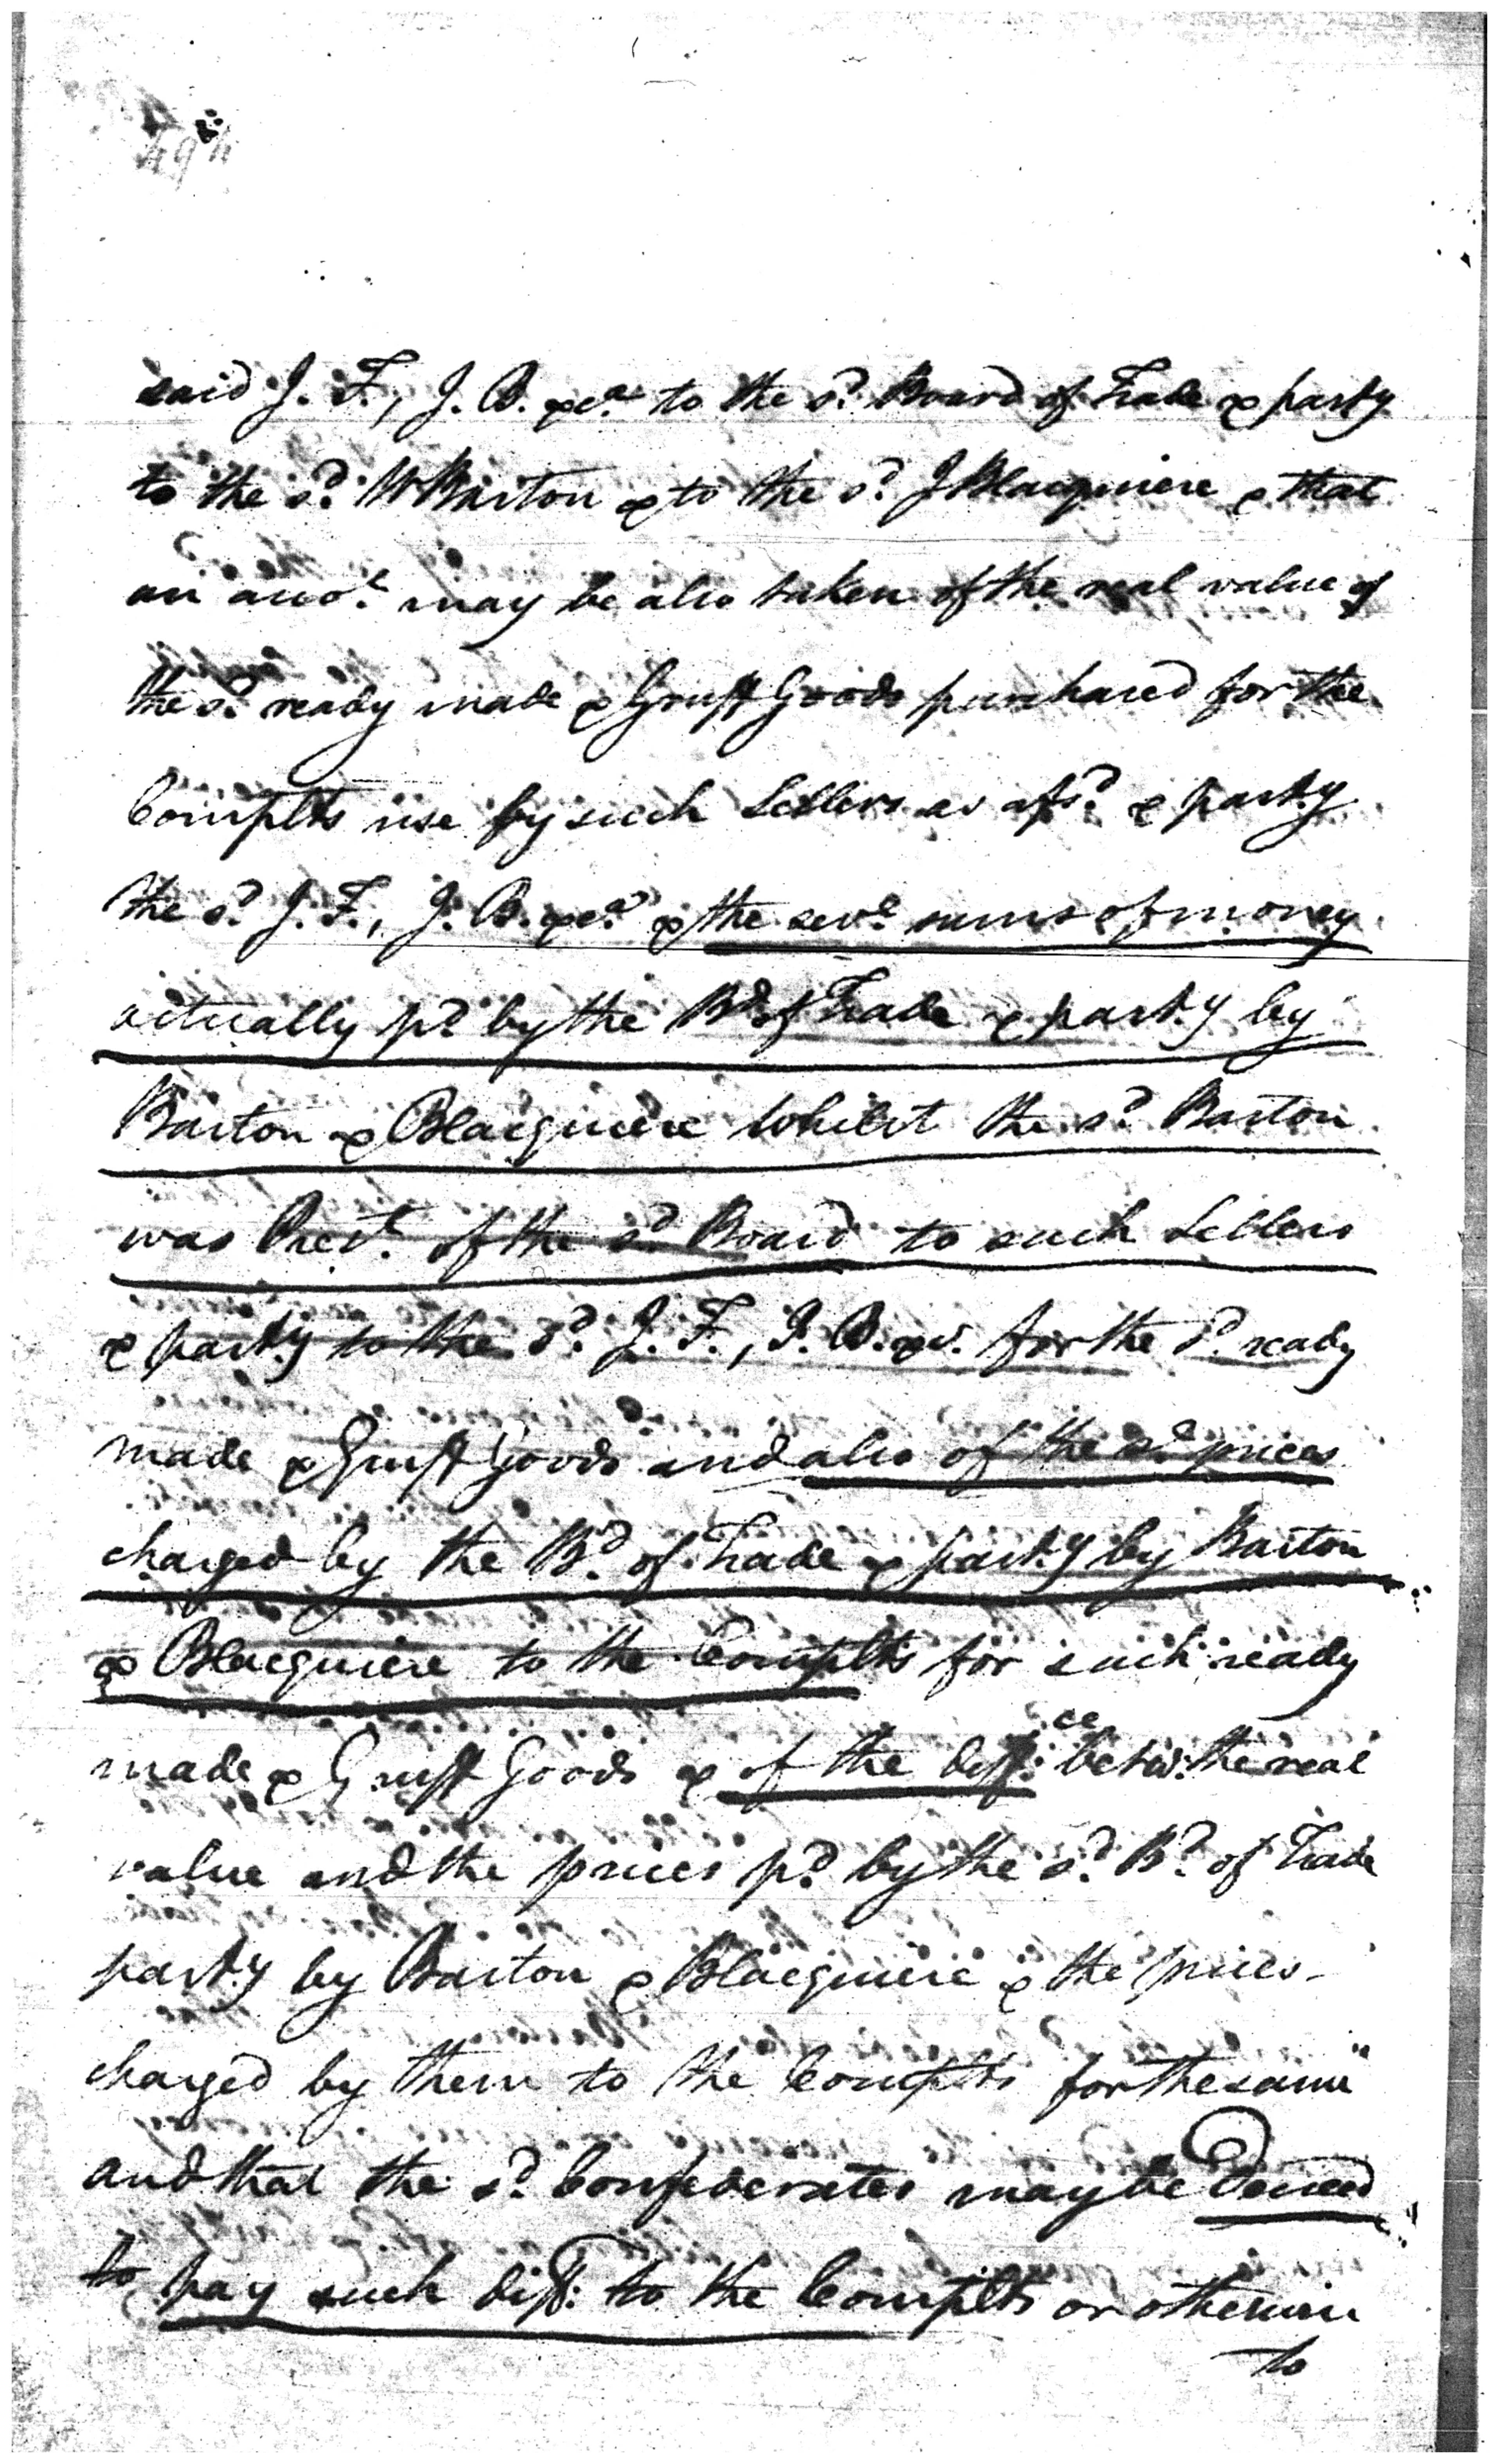 494
said J. F., J. B. &ca. to the sd. Board of Trade & partly
to the sd. W Barton & to the sd. J Blacquiere & that
an accot. may be also taken of the real value of
the sd. ready made & Gruff Goods purchased for the
Complts use by such Sellers as afsd. & partly
the sd. J. F., J. B. &ca. & the sevl. sums of money
actually pd. by the Bd. of Trade & partly by
Barton & Blacquiere whilst the sd. Barton
was Prest. of the sd. Board to such Sellers
& partly to the sd. J. F., J. B. &c. for the sd. ready
made & Gruff Goods and also of the sd. prices
charged by the Bd. of Trade & partly by Barton
& Blacquiere to the Complts for such ready
made & Gruff Goods & of the diff:ce betw: the real
value and the prices pd. by the sd. Bd. of Trade
partly by Barton & Blacquiere & the prices
charged by them to the Complts for the same"
and that the sd. Confederates may be Decreed
to pay such diff: to the Complts or otherwise
to